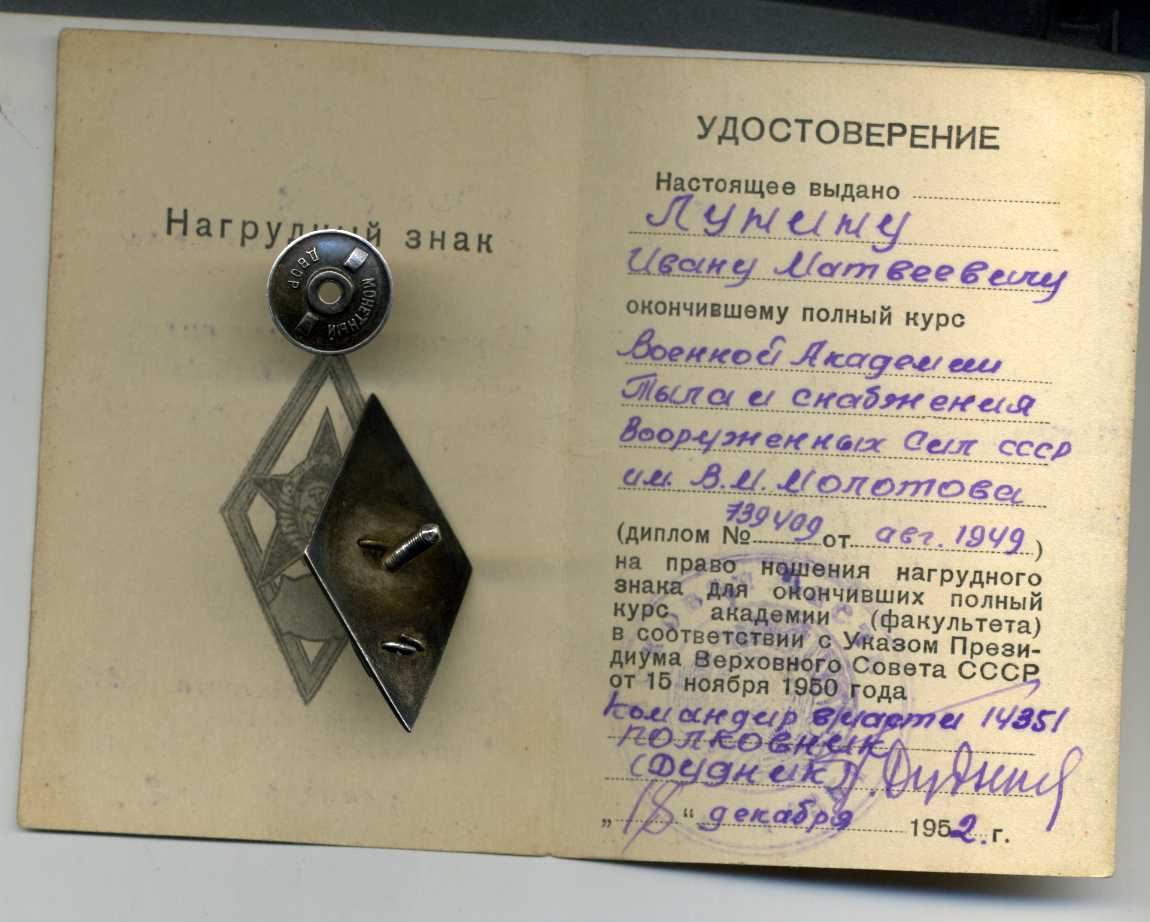 Нагрудный знак
МОНЕТНЫЙ
ДВОР
УДОСТОВЕРЕНИЕ
Настоящее выдано
Лунину
Ивану Матвеевичу
окончившему полный курс
Военной Академии
Тыла и снабжения
Вооруженных Сил СССР
им. В.М. Молотова
(диплом № 739409 от авг. 1949)
на право ношения нагрудного
знака для окончивших полный
курс академии (факультета)
в соответствии с Указом Прези-
диума Верховного Совета СССР
от 15 ноября 1950 года
Командир в/части 14351
полковник
(Дудник)
„18“ декабря 1952 г.